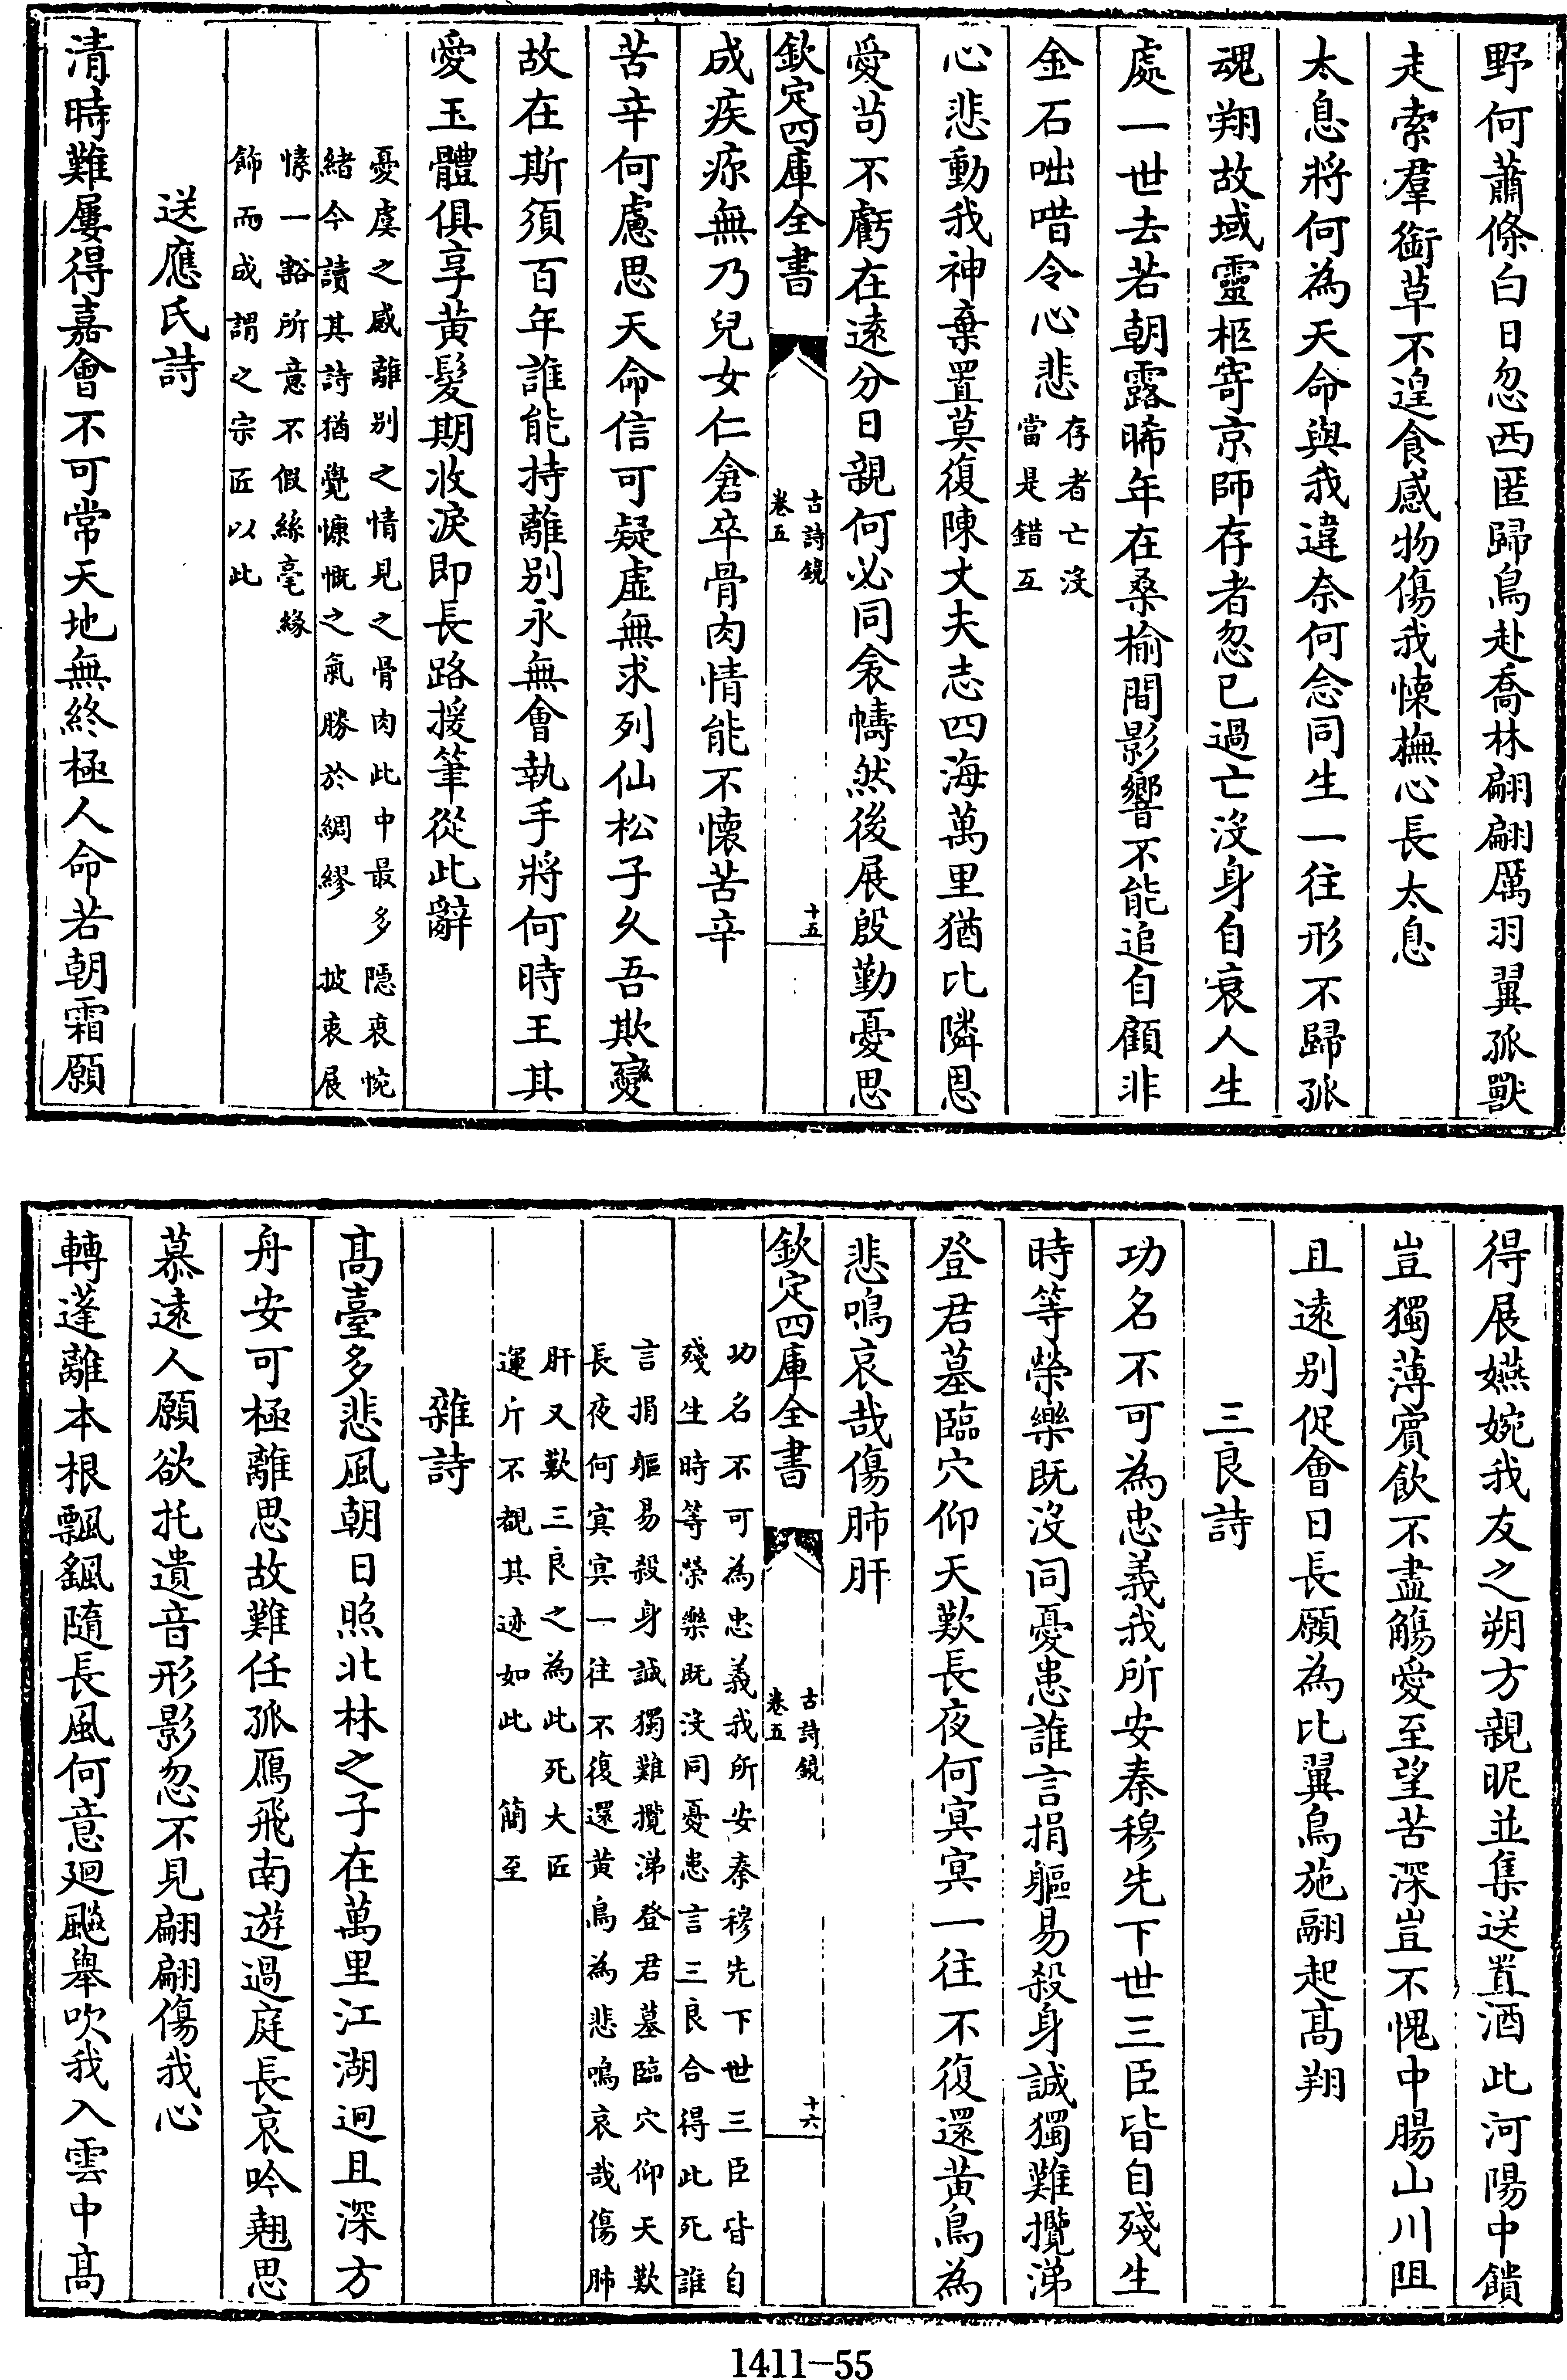 野何蕭條白日忽西匿歸鳥赴喬林翩翩厲羽翼孤獸
走索羣銜草不遑食感物傷我懐撫心長太息
太息將何為天命與我違奈何念同生一往形不歸孤
魂翔故域靈柩寄京師存者忽已過亡沒身自衰人生
處一世去若朝露晞年在桑榆間影響不能追自顧非
金石咄唶令心悲
存者亡沒
當是錯互
心悲動我神棄置莫復陳丈夫志四海萬里猶比隣恩
愛茍不虧在遠分日親何必同衾幬然後展殷勤憂思
欽定四庫全書
古詩鏡
卷五
十五
成疾疢無乃兒女仁倉卒骨肉情能不懐苦辛
苦辛何慮思天命信可疑虛無求列仙松子久吾欺變
故在斯須百年誰能持離别永無會執手將何時王其
愛玉體俱享黃髮期收淚即長路援筆從此辭
憂虞之感離别之情見之骨肉此中最多 隱衷惋
緒今讀其詩猶覺慷慨之氣勝於綢繆 披衷展
愫一豁所意不假絲毫緣
飾而成謂之宗匠以此
送應氏詩
清時難屢得嘉會不可常天地無終極人命若朝霜願
得展嬿婉我友之朔方親昵並集送置酒此河陽中饋
豈獨薄賓飲不盡觴愛至望苦深豈不愧中腸山川阻
且遠别促會日長願為比翼鳥施翮起髙翔
三良詩
功名不可為忠義我所安秦穆先下世三臣皆自殘生
時等榮樂既沒同憂患誰言捐軀易殺身誠獨難攬涕
登君墓臨穴仰天歎長夜何冥冥一往不復還黃鳥為
悲鳴哀哉傷肺肝
欽定四庫全書
古詩鏡
卷五
十六
功名不可為忠義我所安秦穆先下世三臣皆自
殘生時等榮樂既沒同憂患言三良合得此死誰
言捐軀易殺身誠獨難攬涕登君墓臨穴仰天歎
長夜何冥冥一往不復還黃鳥為悲鳴哀哉傷肺
肝又歎三良之為此死大匠
運斤不覩其迹如此 簡至
雜詩
髙臺多悲風朝日照北林之子在萬里江湖迥且深方
舟安可極離思故難任孤鴈飛南遊過庭長哀吟翹思
慕遠人願欲托遺音形影忽不見翩翩傷我心
轉蓬離本根飄颻隨長風何意迴飈舉吹我入雲中髙
1411-55